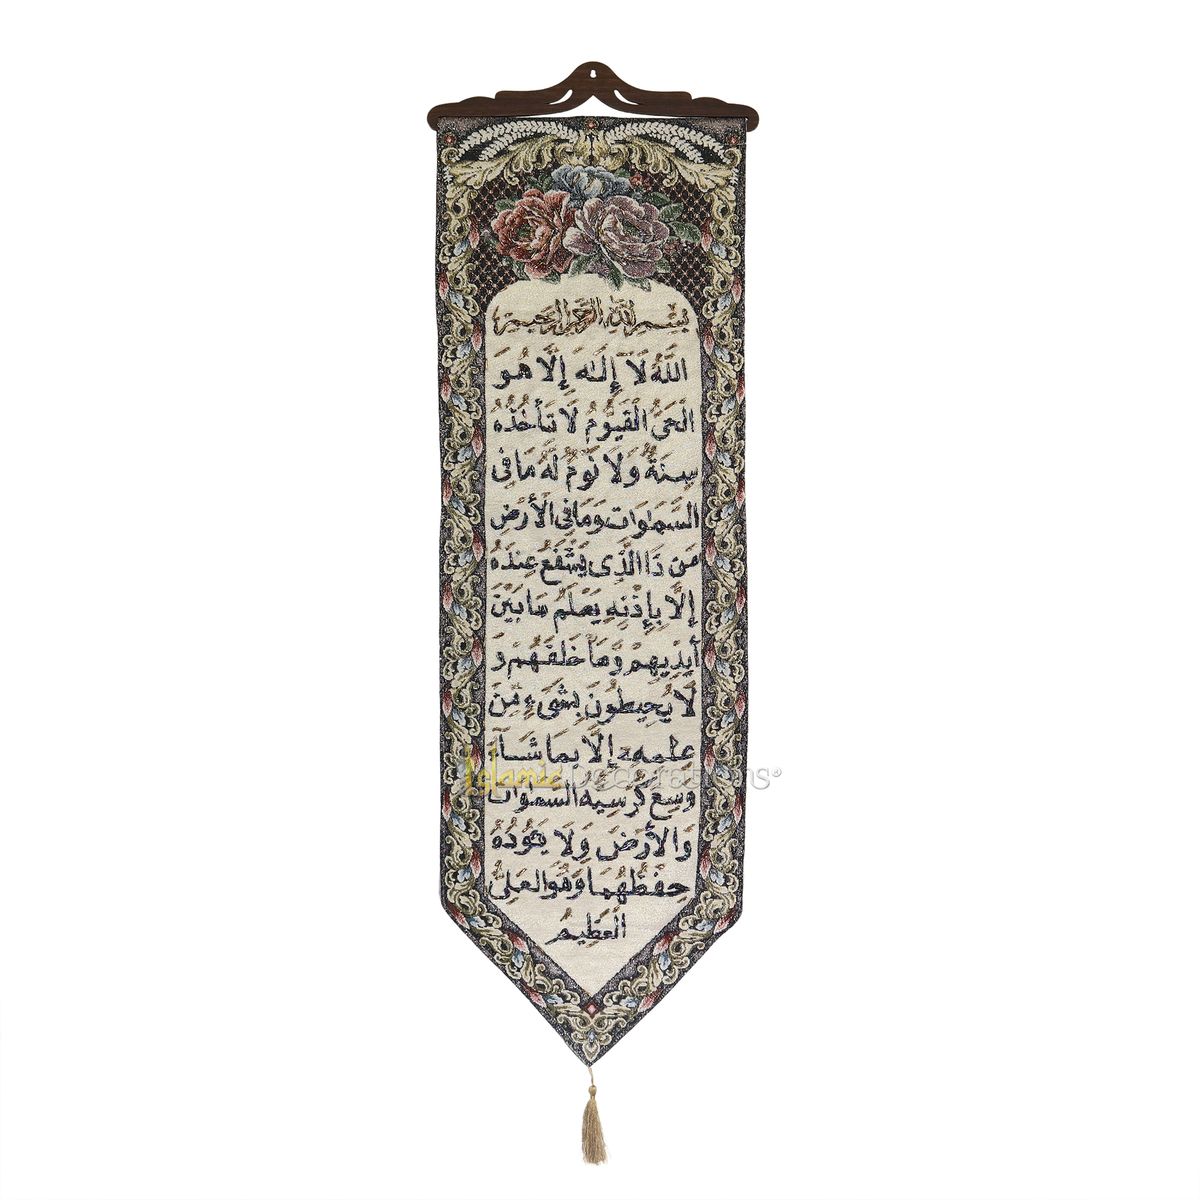 بسم الله الرحمن الرحيم
اللَّهُ لَآ إِلَـٰهَ إِلَّا هُوَ
الْحَىُّ الْقَيُّومُ لَا تَأْخُذُهُ
سِنَةٌ وَلَا نَوْمٌ لَّهُ مَا فِى
السَّمَوَاتِ وَمَا فِى الْأَرْضِ
مَن ذَا الَّذِى يَشْفَعُ عِندَهُ
إِلَّا بِإِذْنِهِ يَعْلَمُ مَا بَيْنَ
أَيْدِيهِمْ وَمَا خَلْفَهُمْ وَ
لَا يُحِيطُونَ بِشَىْءٍ مِّنْ
عِلْمِهِ إِلَّا بِمَا شَآءَ
وَسِعَ كُرْسِيُّهُ السَّمَوَاتِ
وَالْأَرْضَ وَلَا يَـُٔودُهُ
حِفْظُهُمَا وَهُوَ الْعَلِىُّ
الْعَظِيمُ
Islamic Decorations®